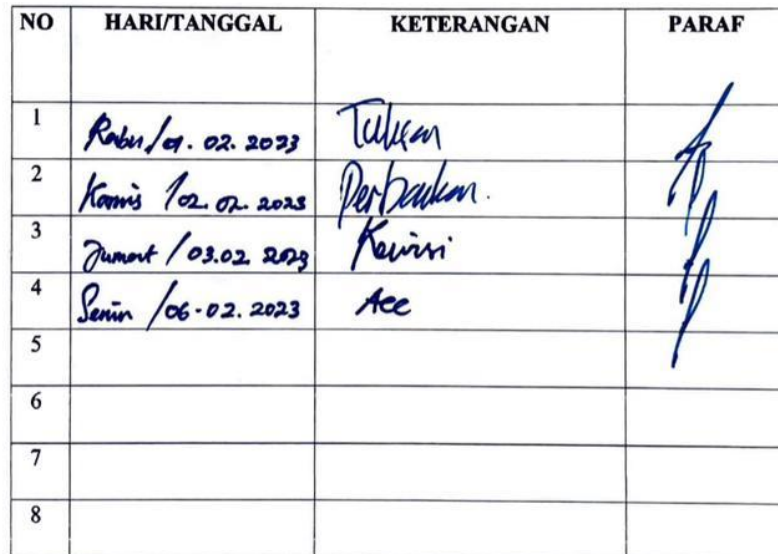 NO HARI/TANGGAL KETERANGAN PARAF
1 Rabu / 01. 02. 2023
2 Kamis / 02. 02. 2023 Perbaikan.
3 Jumat / 03.02. 2023 Revisi
4 Senin / 06-02. 2023 Acc
5
6
7
8